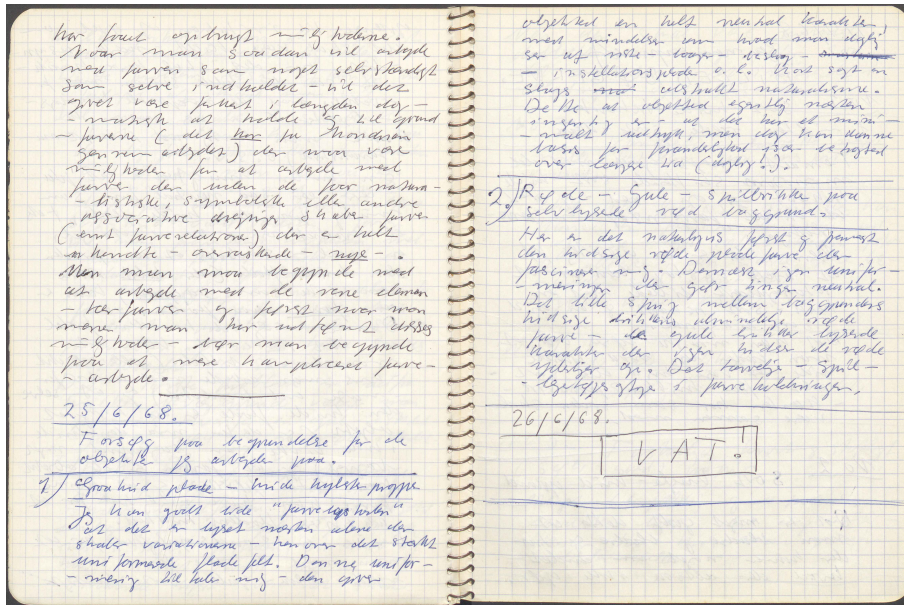 har faaet opbrugt mulighederne.
Naar man saadan vil arbejde
med farven som noget selvstændigt
som selve indholdet – vil det
givet være forkert i længden dog –
– at holde sig til grund
– farverne (det har jo Mondrian
gennemarbejdet) der maa være
muligheder for at arbejde med
farver der uden de faar natura-
– listiske, symbolske eller andre
associative drejninger skaber farver
(evnt farverelationer) der er helt
ukendte – overraskende – nye – .
Men man maa begynde med
at arbejde med de rene elemen-
– tærfarver og først naar man
mener man har udtømt disses
muligheder – bør man begynde
paa et mere kompliceret farve-
– arbejde.
25/6/68.
Forsøg paa begrundelse for de
objekter jeg arbejder paa.
1) Graahvid plade – hvide nylon propper
Jeg kan godt lide "farveløsheden"
at det er lyset næsten alene der
skaber variationerne – henover det stærkt
uniformerede plade felt. Denne unifor-
– mering tiltaler mig – den giver
objektet en helt neutral karakter,
med mindelser om hvad man daglig
ser af riste – – beslag –
– installationsplade o.l. Kort sagt en
slags abstrakt naturalisme.
Dette at objektet egentlig næsten
ingenting er – at det har et mini-
– malt udtryk, men dog kan danne
basis for foranderlighed især betragtet
over længere tid (daglig!).
2.) Røde – Gule – spillbrikker paa
selvlysende rød baggrund.
Her er det naturligvis først og fremmest
den hidsige røde pladefarve der
fascinerer mig. Dernæst igen unifor-
– meringen der gør tingen neutral.
Det lille spring mellem baggrundens
hidsige brikkens almindelige røde
farve – de gule brikker lysende
karakter der igen hidser de røde
yderligere op. Det – Spil –
– legetøjsagtige i farveholdningen.
26/6/68.
VAT.